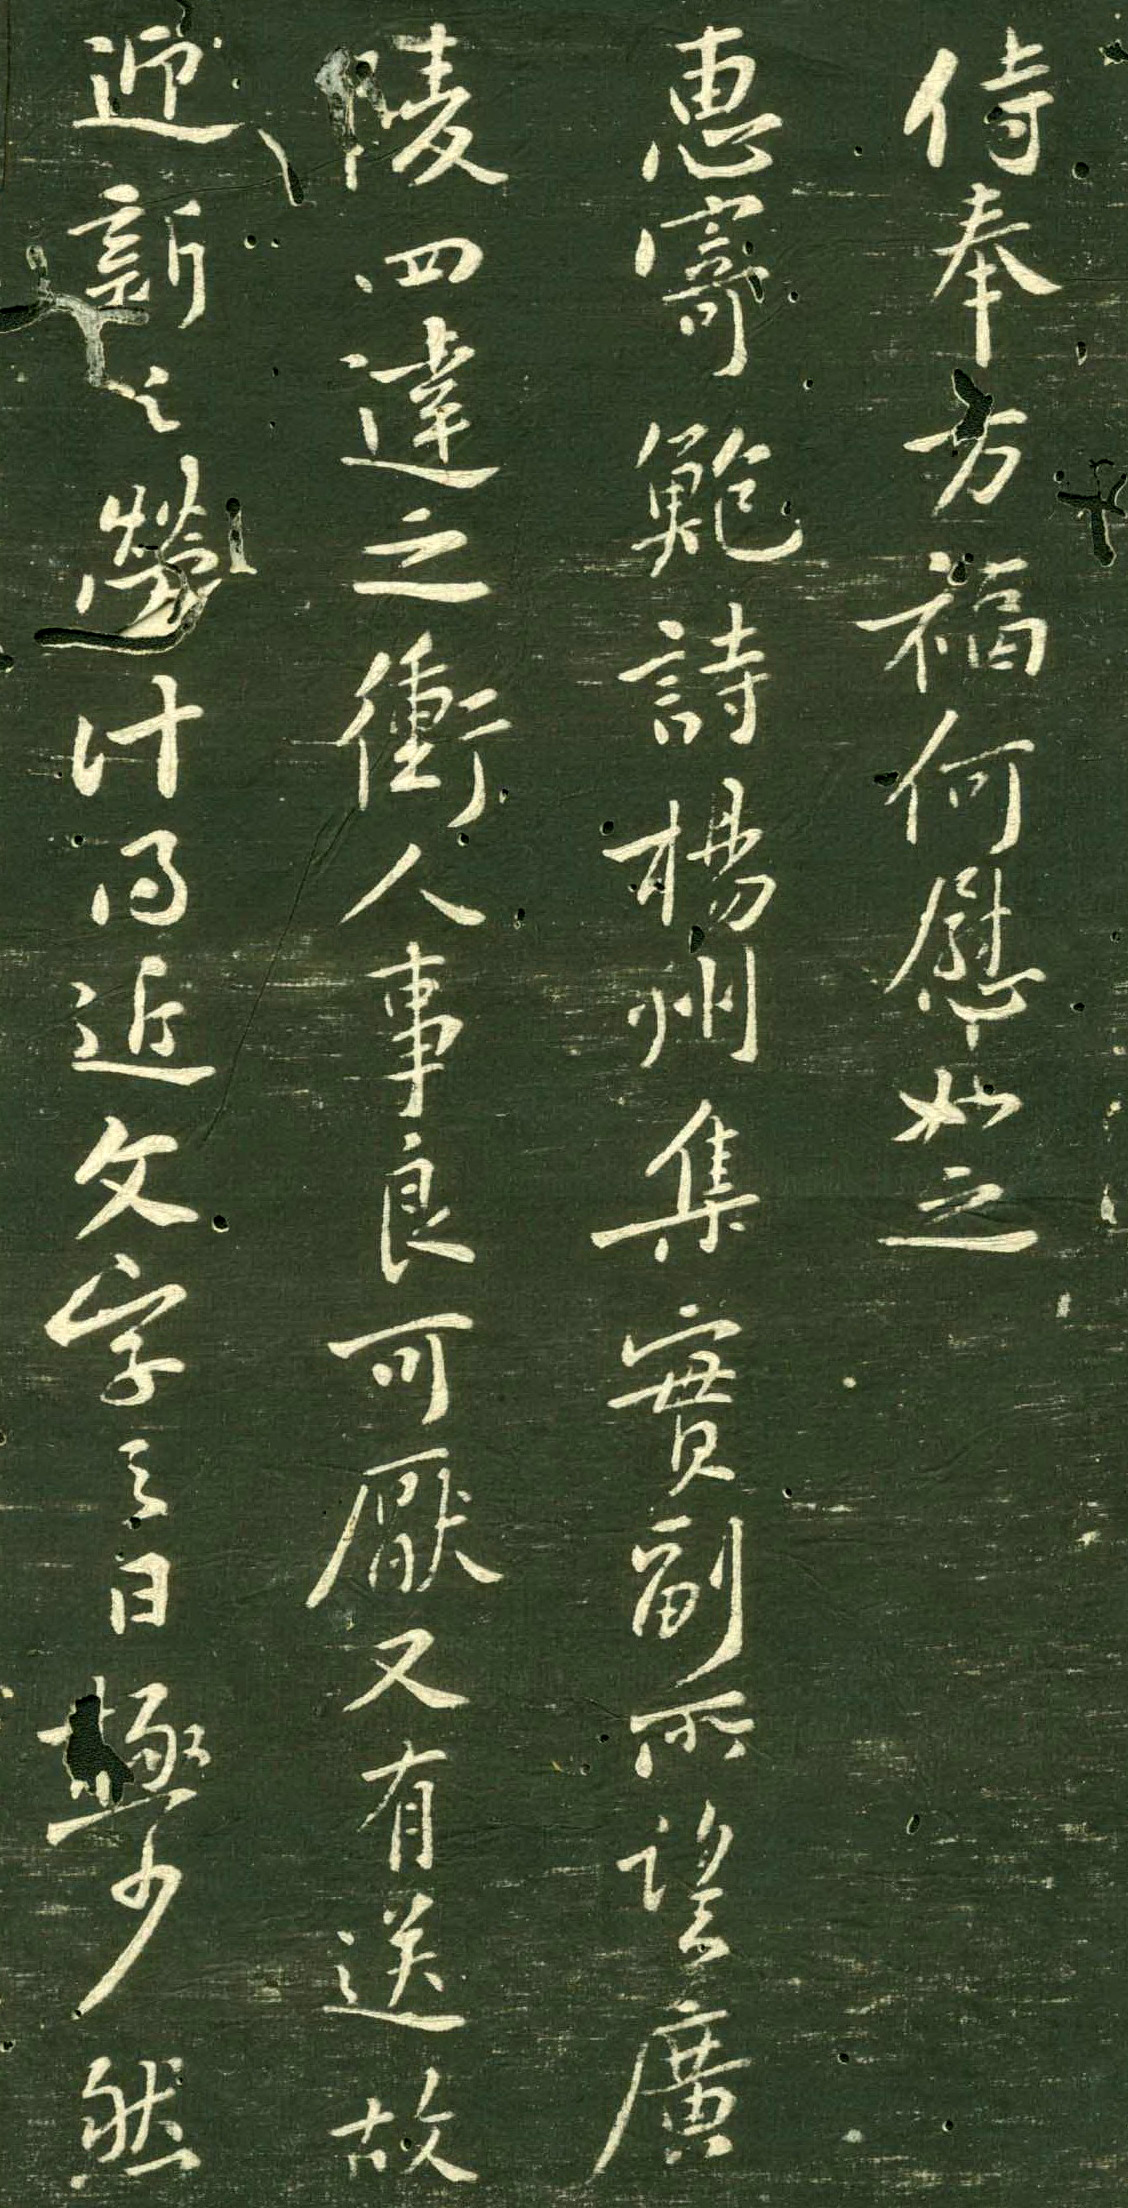 侍奉万福何慰如之
惠寄鮑詩楊州集實副所望廣
陵四達之衝人事良可厭又有送故
迎新之勞計得近文字之日極少然